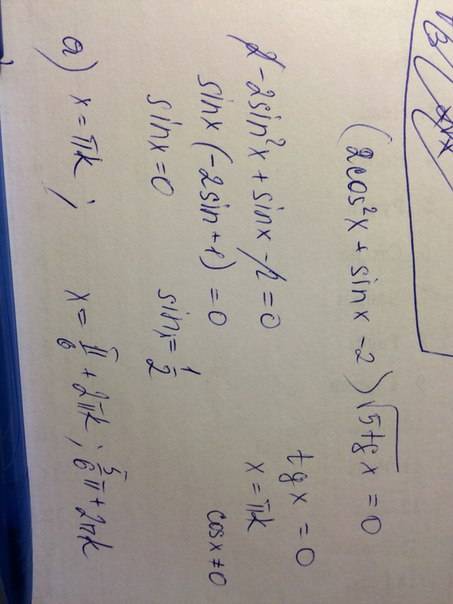 (2cos²x + sinx - 2) √5tgx = 0
2 - 2sin²x + sinx - 2 = 0
tgx = 0
sinx (-2sin + 1) = 0
x = πk
sinx = 0
sinx = 1/2
cosx ≠ 0
a) x = πk ;
x = π/6 + 2πk ; 5/6 π + 2πk